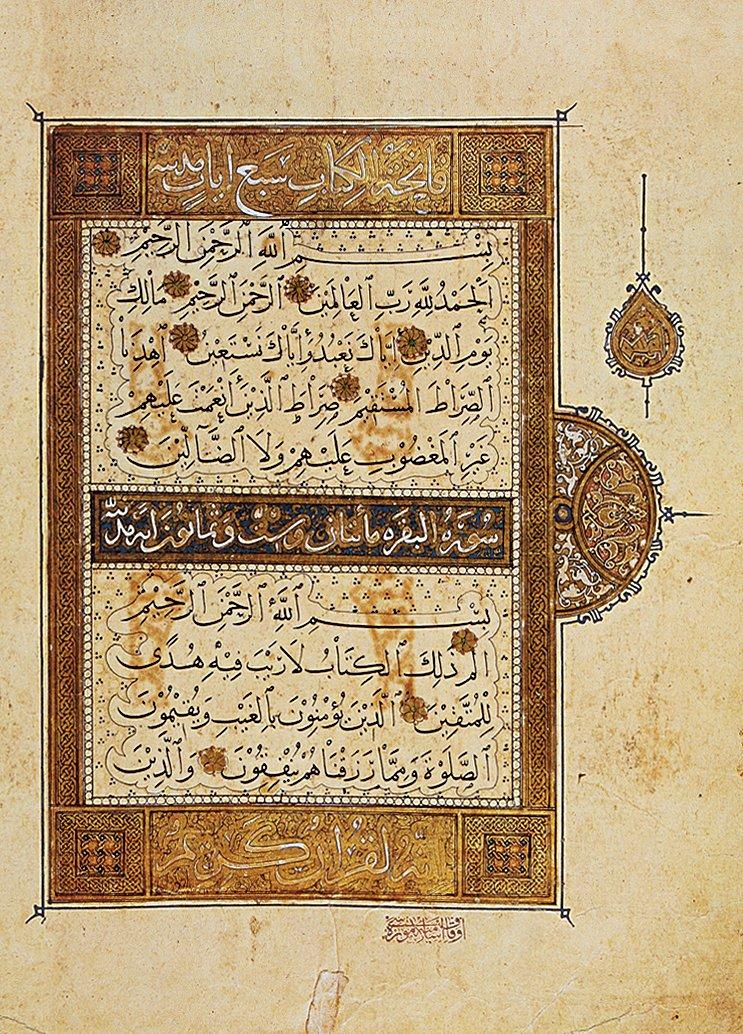 فاتحة الكتاب سبع ايات مدنية
بِسْمِ ٱللَّهِ ٱلرَّحْمَٰنِ ٱلرَّحِيمِ
ٱلْحَمْدُ لِلَّهِ رَبِّ ٱلْعَالَمِينَ ٱلرَّحْمَٰنِ ٱلرَّحِيمِ مَالِكِ
يَوْمِ ٱلدِّينِ إِيَّاكَ نَعْبُدُ وَإِيَّاكَ نَسْتَعِينُ ٱهْدِنَا
ٱلصِّرَاطَ ٱلْمُسْتَقِيمَ صِرَاطَ ٱلَّذِينَ أَنْعَمْتَ عَلَيْهِمْ
غَيْرِ ٱلْمَغْضُوبِ عَلَيْهِمْ وَلَا ٱلضَّآلِّينَ
سورة البقرة مائتان وست وثمانون اية مدنية
بِسْمِ ٱللَّهِ ٱلرَّحْمَٰنِ ٱلرَّحِيمِ
الم ذَٰلِكَ ٱلْكِتَابُ لَا رَيْبَ فِيهِ هُدًى
لِلْمُتَّقِينَ ٱلَّذِينَ يُؤْمِنُونَ بِٱلْغَيْبِ وَيُقِيمُونَ
ٱلصَّلَوٰةَ وَمِمَّا رَزَقْنَاهُمْ يُنْفِقُونَ وَٱلَّذِينَ
انه لقران كريم